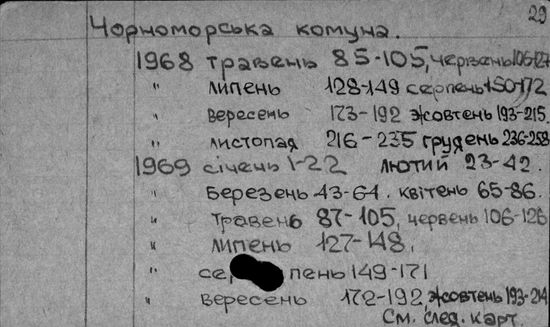 29
Чорноморська комуна.
1968 травень 85-105, червень 106-127
" липень 128-149 серпень 150-172
" вересень 173-192 жовтень 193-215.
" листопад 216-235 грудень 236-258
1969 січень 1-22 лютий 23-42.
" Березень 43-64. квітень 65-86.
" травень 87-105, червень 106-126
" липень 127-148.
" се пень 149-171
" вересень 172-192, жовтень 193-214
См. след. карт.